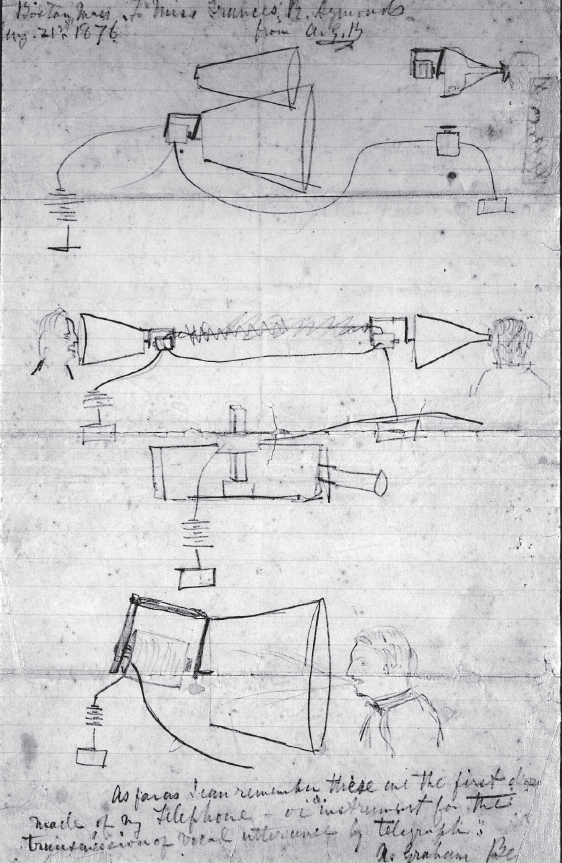 Boston Mass. To Miss Frances M. Symonds
Aug. 21st 1876. from A.G.B
As far as I can remember these are the first
made of my Telephone - or "instrument for the
transmission of vocal utterance by telegraph".
A. Graham